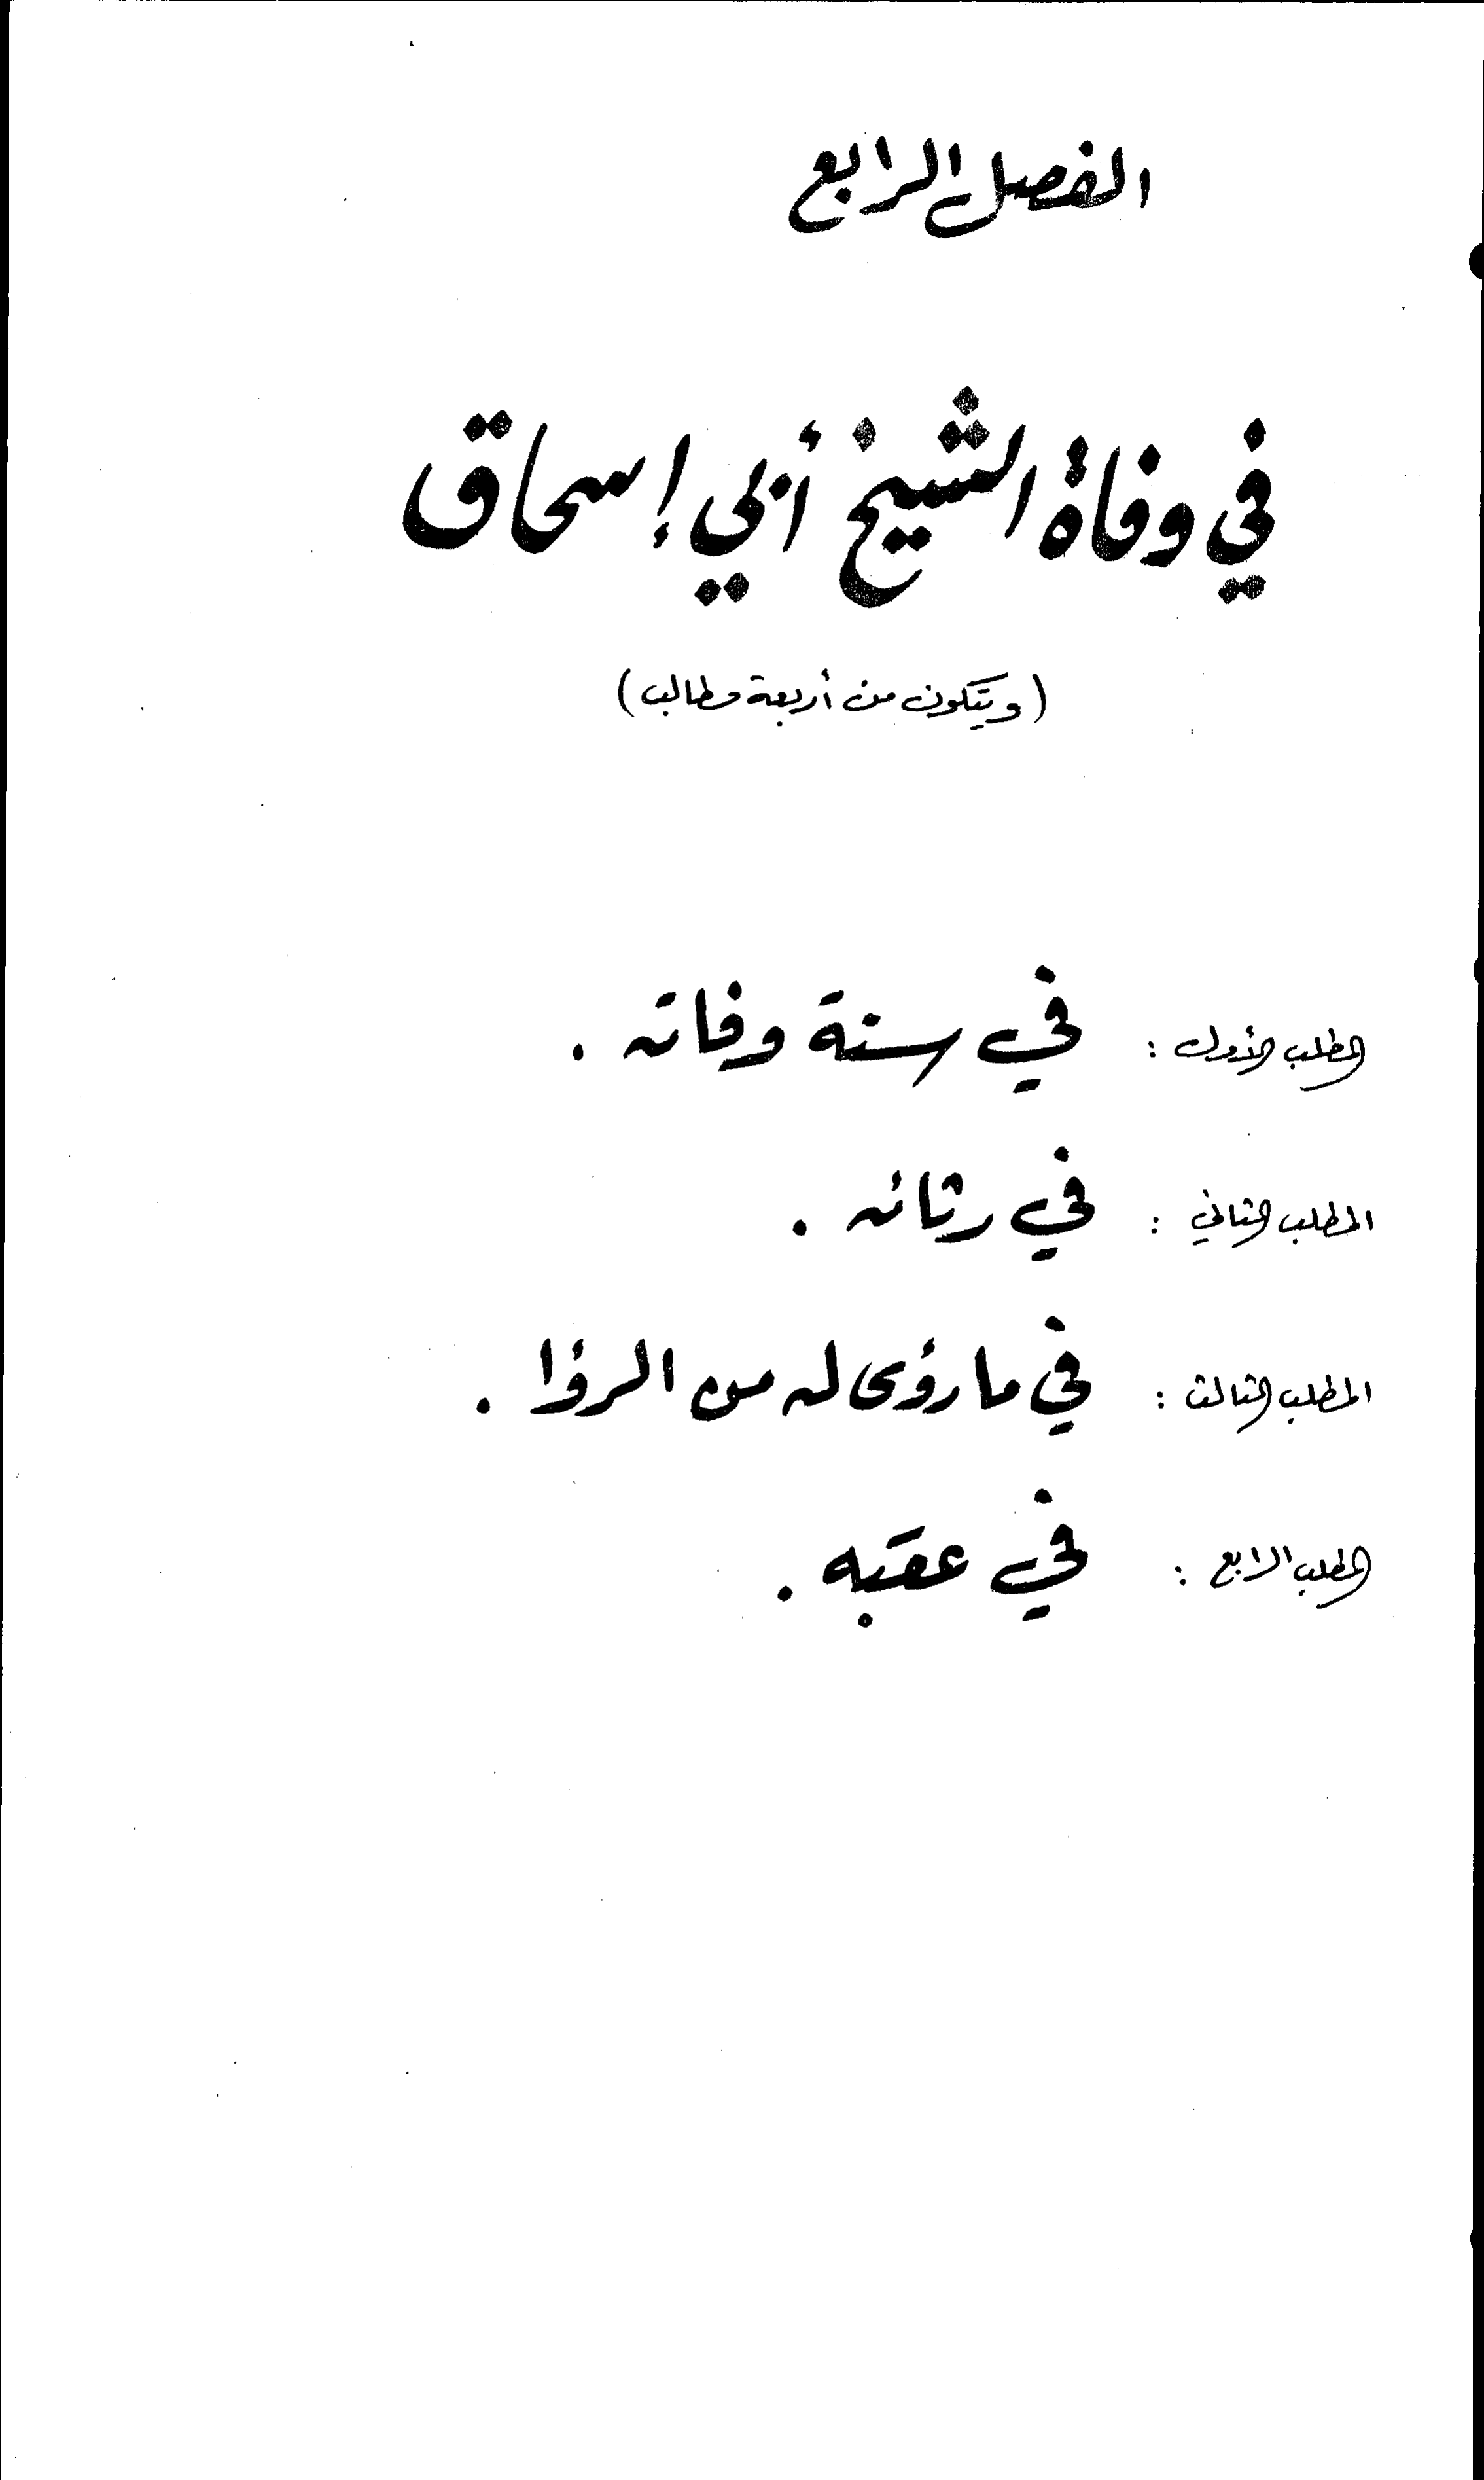 الفصل الرابع
في وفاة الشيخ أبي إسحاق
(ويتكون من أربعة مطالب)
المطلب الأول : في سنة وفاته .
المطلب الثاني : في رثائه .
المطلب الثالث : في ما رؤى له من الرؤا .
المطلب الرابع : في عقبه .